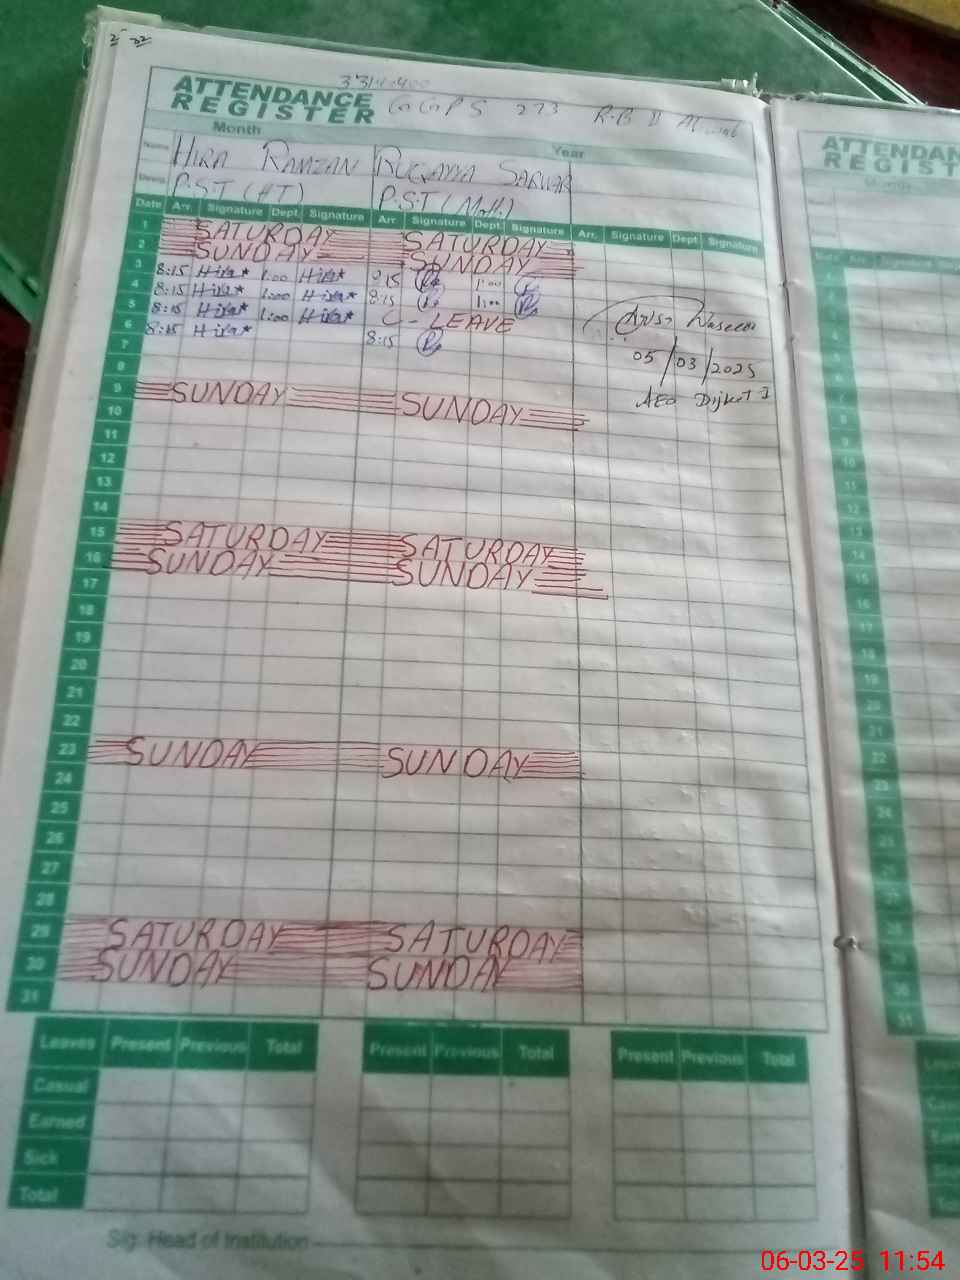 ATTENDANCE
REGISTER
273 R.B II
Month Year
Name HIRA RAMZAN RUQAYYA SARWAR
P.S.T (HT) P.S.T (Math)
Date Arr. Signature Dept. Signature Arr. Signature Dept. Signature Arr. Signature Dept Signature
1 SATURDAY SATURDAY
2 SUNDAY SUNDAY
3 8:15 Hira* 1:00 Hira* 8:15 1:00
4 8:15 Hira* 1:00 Hira* 8:15 1:00
5 8:15 Hira* 1:00 Hira* C - LEAVE
6 8:15 Hira* 8:15
7
05/03/2025
8
AEO Dijkot I
9 SUNDAY SUNDAY
10
11
12
13
14
15 SATURDAY SATURDAY
16 SUNDAY SUNDAY
17
18
19
20
21
22
23 SUNDAY SUNDAY
24
25
26
27
28
29 SATURDAY SATURDAY
30 SUNDAY SUNDAY
31
Leaves Present Previous Total Present Previous Total Present Previous Total
Casual
Earned
Sick
Total
Sig. Head of Institution
ATTENDAN
REGIST
06-03-25 11:54